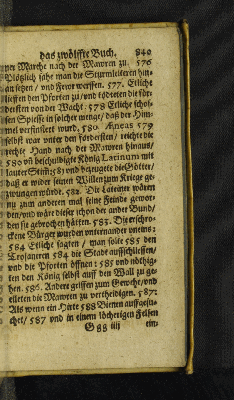 das zwölffte Buch. 840
ner Marche nach der Mawren zu. 576
Plötzlich sahe man die Sturmleiteren hin-
an setzen / und Fewr werffen. 577. Etliche
lieffen den Pforten zu / und tödteten dieför-
dersten von der Wacht. 578 Etliche schos-
sen Spiesse in solcher menge / daß der Him-
mel verfinstert wurd. 580. Æneas 579
selbst war unter den fordersten / reicht die
rechte Hand nach der Mawren hinaus /
580 uñ beschuldigte König Latinum mit
lauter Stiñ: 581 und bezeugte die Götter /
daß er wider seinen Willen zum Kriege ge-
zwungen würde. 582. Die Latiner wären
nu zum anderen mal seine Feinde gewor-
den / und wäre dieser schon der ander Bund /
den sie gebrochen hätten. 583. Die erschro-
ckene Bürger wurden unternander uneins:
584 Etliche sagten / man solte 585 den
Trojaneren 584 die Stadt auffschliessen /
und die Pforten öffnen: 585 und nöthig-
ten den König selbst auff den Wall zu ge-
hen. 586. Andere griffen zum Gewehr / und
eileten die Mawren zu vertheidigen. 587:
Als wenn ein Hirte 588 Bienen auffgesu-
chet / 587 und in einem löcherigen Felsen
Ggg iiij ein-